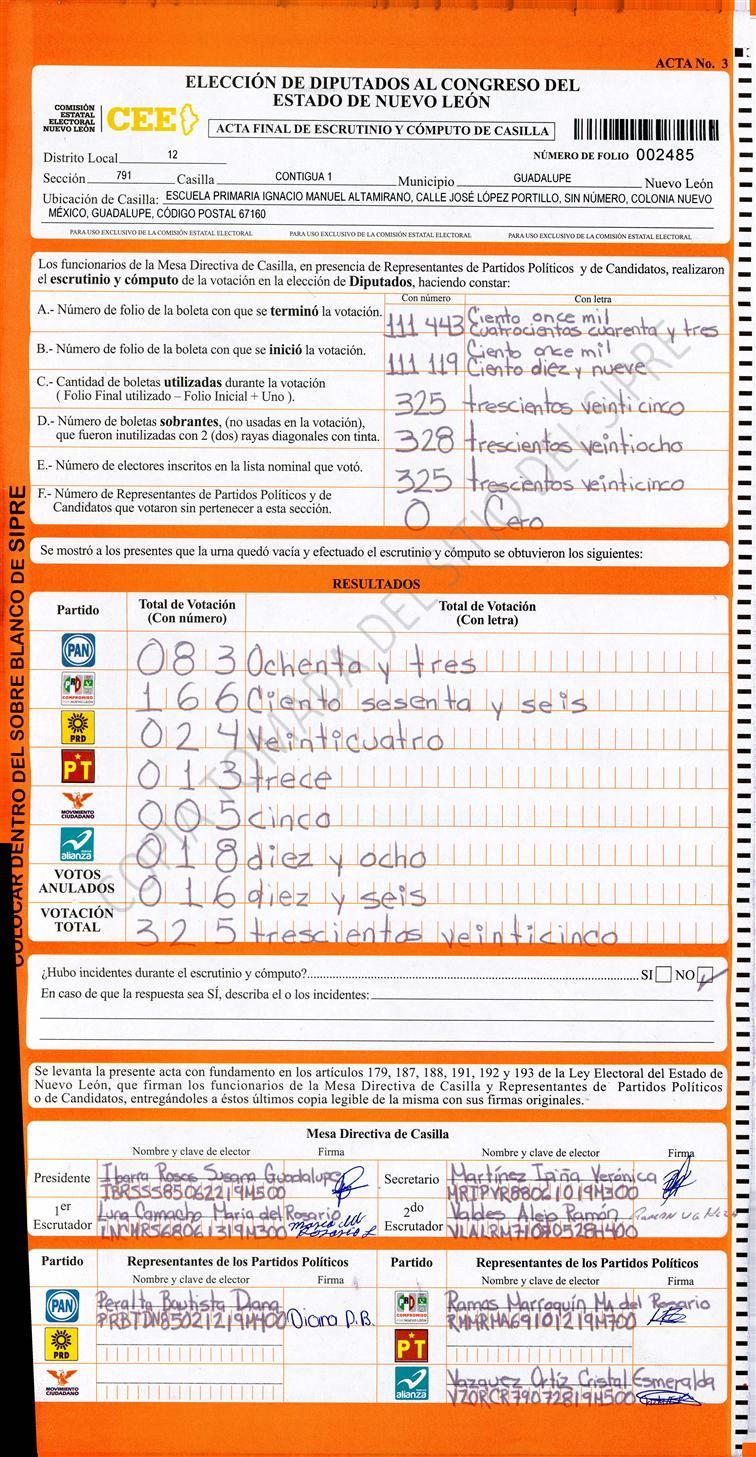 ACTA No. 3
ELECCIÓN DE DIPUTADOS AL CONGRESO DEL
ESTADO DE NUEVO LEÓN
COMISIÓN
ESTATAL
ELECTORAL
NUEVO LEÓN
CEE
ACTA FINAL DE ESCRUTINIO Y CÓMPUTO DE CASILLA
Distrito Local 12
NÚMERO DE FOLIO 002485
Sección 791 Casilla CONTIGUA 1 Municipio GUADALUPE Nuevo León
Ubicación de Casilla: ESCUELA PRIMARIA IGNACIO MANUEL ALTAMIRANO, CALLE JOSÉ LÓPEZ PORTILLO, SIN NÚMERO, COLONIA NUEVO
MÉXICO, GUADALUPE, CÓDIGO POSTAL 67160
PARA USO EXCLUSIVO DE LA COMISIÓN ESTATAL ELECTORAL PARA USO EXCLUSIVO DE LA COMISIÓN ESTATAL ELECTORAL PARA USO EXCLUSIVO DE LA COMISIÓN ESTATAL ELECTORAL
Los funcionarios de la Mesa Directiva de Casilla, en presencia de Representantes de Partidos Políticos y de Candidatos, realizaron
el escrutinio y cómputo de la votación en la elección de Diputados, haciendo constar:
Con número Con letra
A.- Número de folio de la boleta con que se terminó la votación. 111 443 Ciento once mil
Cuatrocientos cuarenta y tres
B.- Número de folio de la boleta con que se inició la votación. 111 119 Ciento once mil
Ciento diez y nueve
C.- Cantidad de boletas utilizadas durante la votación
( Folio Final utilizado – Folio Inicial + Uno ). 325 trescientos veinti cinco
D.- Número de boletas sobrantes, (no usadas en la votación),
que fueron inutilizadas con 2 (dos) rayas diagonales con tinta. 328 trescientos veintiocho
E.- Número de electores inscritos en la lista nominal que votó. 325 trescientos veinticinco
F.- Número de Representantes de Partidos Políticos y de
Candidatos que votaron sin pertenecer a esta sección. 0 Cero
Se mostró a los presentes que la urna quedó vacía y efectuado el escrutinio y cómputo se obtuvieron los siguientes:
RESULTADOS
Partido Total de Votación Total de Votación
(Con número) (Con letra)
PAN 083 Ochenta y tres
PRD COMPROMISO POR NUEVO LEÓN 166 Ciento sesenta y seis
PRD 024 Veinticuatro
PT 013 trece
MOVIMIENTO CIUDADANO 005 cinco
alianza 018 diez y ocho
VOTOS
ANULADOS 016 diez y seis
VOTACIÓN
TOTAL 325 trescientos veinticinco
¿Hubo incidentes durante el escrutinio y cómputo? SI NO
En caso de que la respuesta sea SÍ, describa el o los incidentes:
Se levanta la presente acta con fundamento en los artículos 179, 187, 188, 191, 192 y 193 de la Ley Electoral del Estado de
Nuevo León, que firman los funcionarios de la Mesa Directiva de Casilla y Representantes de Partidos Políticos
o de Candidatos, entregándoles a éstos últimos copia legible de la misma con sus firmas originales.
Mesa Directiva de Casilla
Nombre y clave de elector Firma Nombre y clave de elector Firma
Presidente Ibarra Rosas Susana Guadalupe
IBRSSS85062219M500
Secretario Martínez Ipiña Verónica
MRIPVR88061019M300
1er
Escrutador Luna Camacho Maria del Rosario
LNCMRS68061319M300 Maria del Rosario L
2do
Escrutador Valdes Alejo Ramón
VLALRM71040528H400
Partido Representantes de los Partidos Políticos Partido Representantes de los Partidos Políticos
Nombre y clave de elector Firma Nombre y clave de elector Firma
PAN Peralta Bautista Diana
PRBTDN85021219M400 Diana P.B.
COMPROMISO POR NUEVO LEÓN Ramas Marroquín Ma del Rosario
RMMRMA69101219M700
PRD
PT
MOVIMIENTO CIUDADANO
alianza Vazquez Ortiz Cristal Esmeralda
VZORCR79072819M500
COLOCAR DENTRO DEL SOBRE BLANCO DE SIPRE
COPIA TOMADA DEL SITIO DEL SIPRE